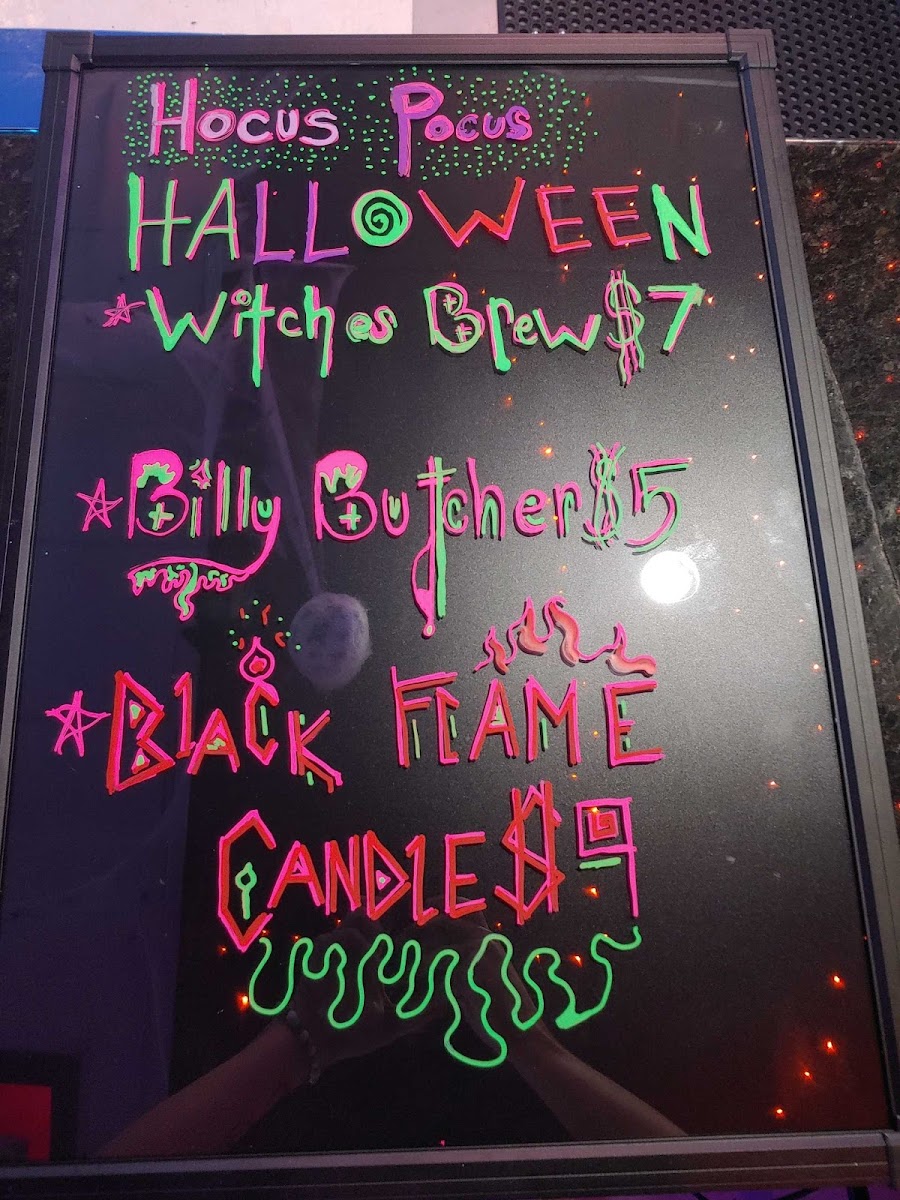 Hocus Pocus
HALLOWEEN
Witches Brew $7
Billy Butcher $5
BlACK FLAME
CANDlE $9